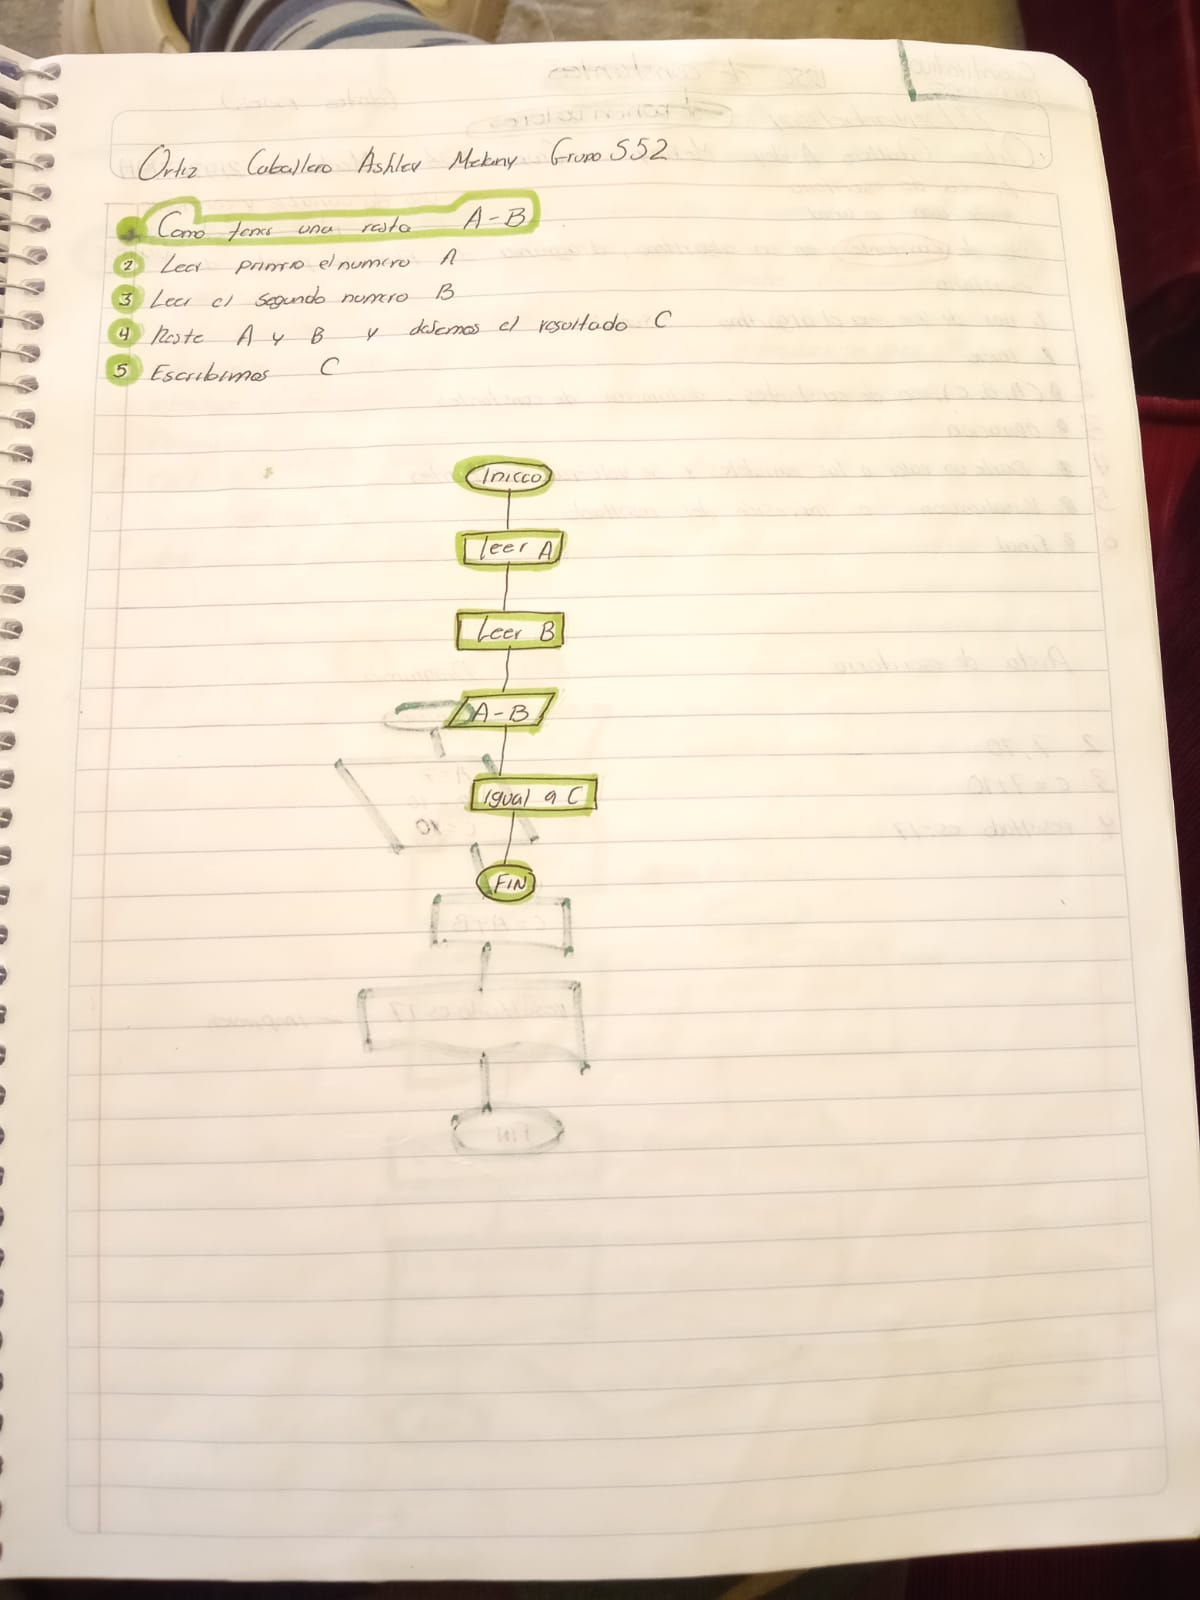 Ortiz Caballero Ashley Melany Grupo 552
1 Como tener una resta A-B
2 Leer primero el numero A
3 Leer el segundo numero B
4 Reste A y B y dejemos el resultado C
5 Escribimos C
Inicio
leer A
Leer B
A-B
igual a C
FIN